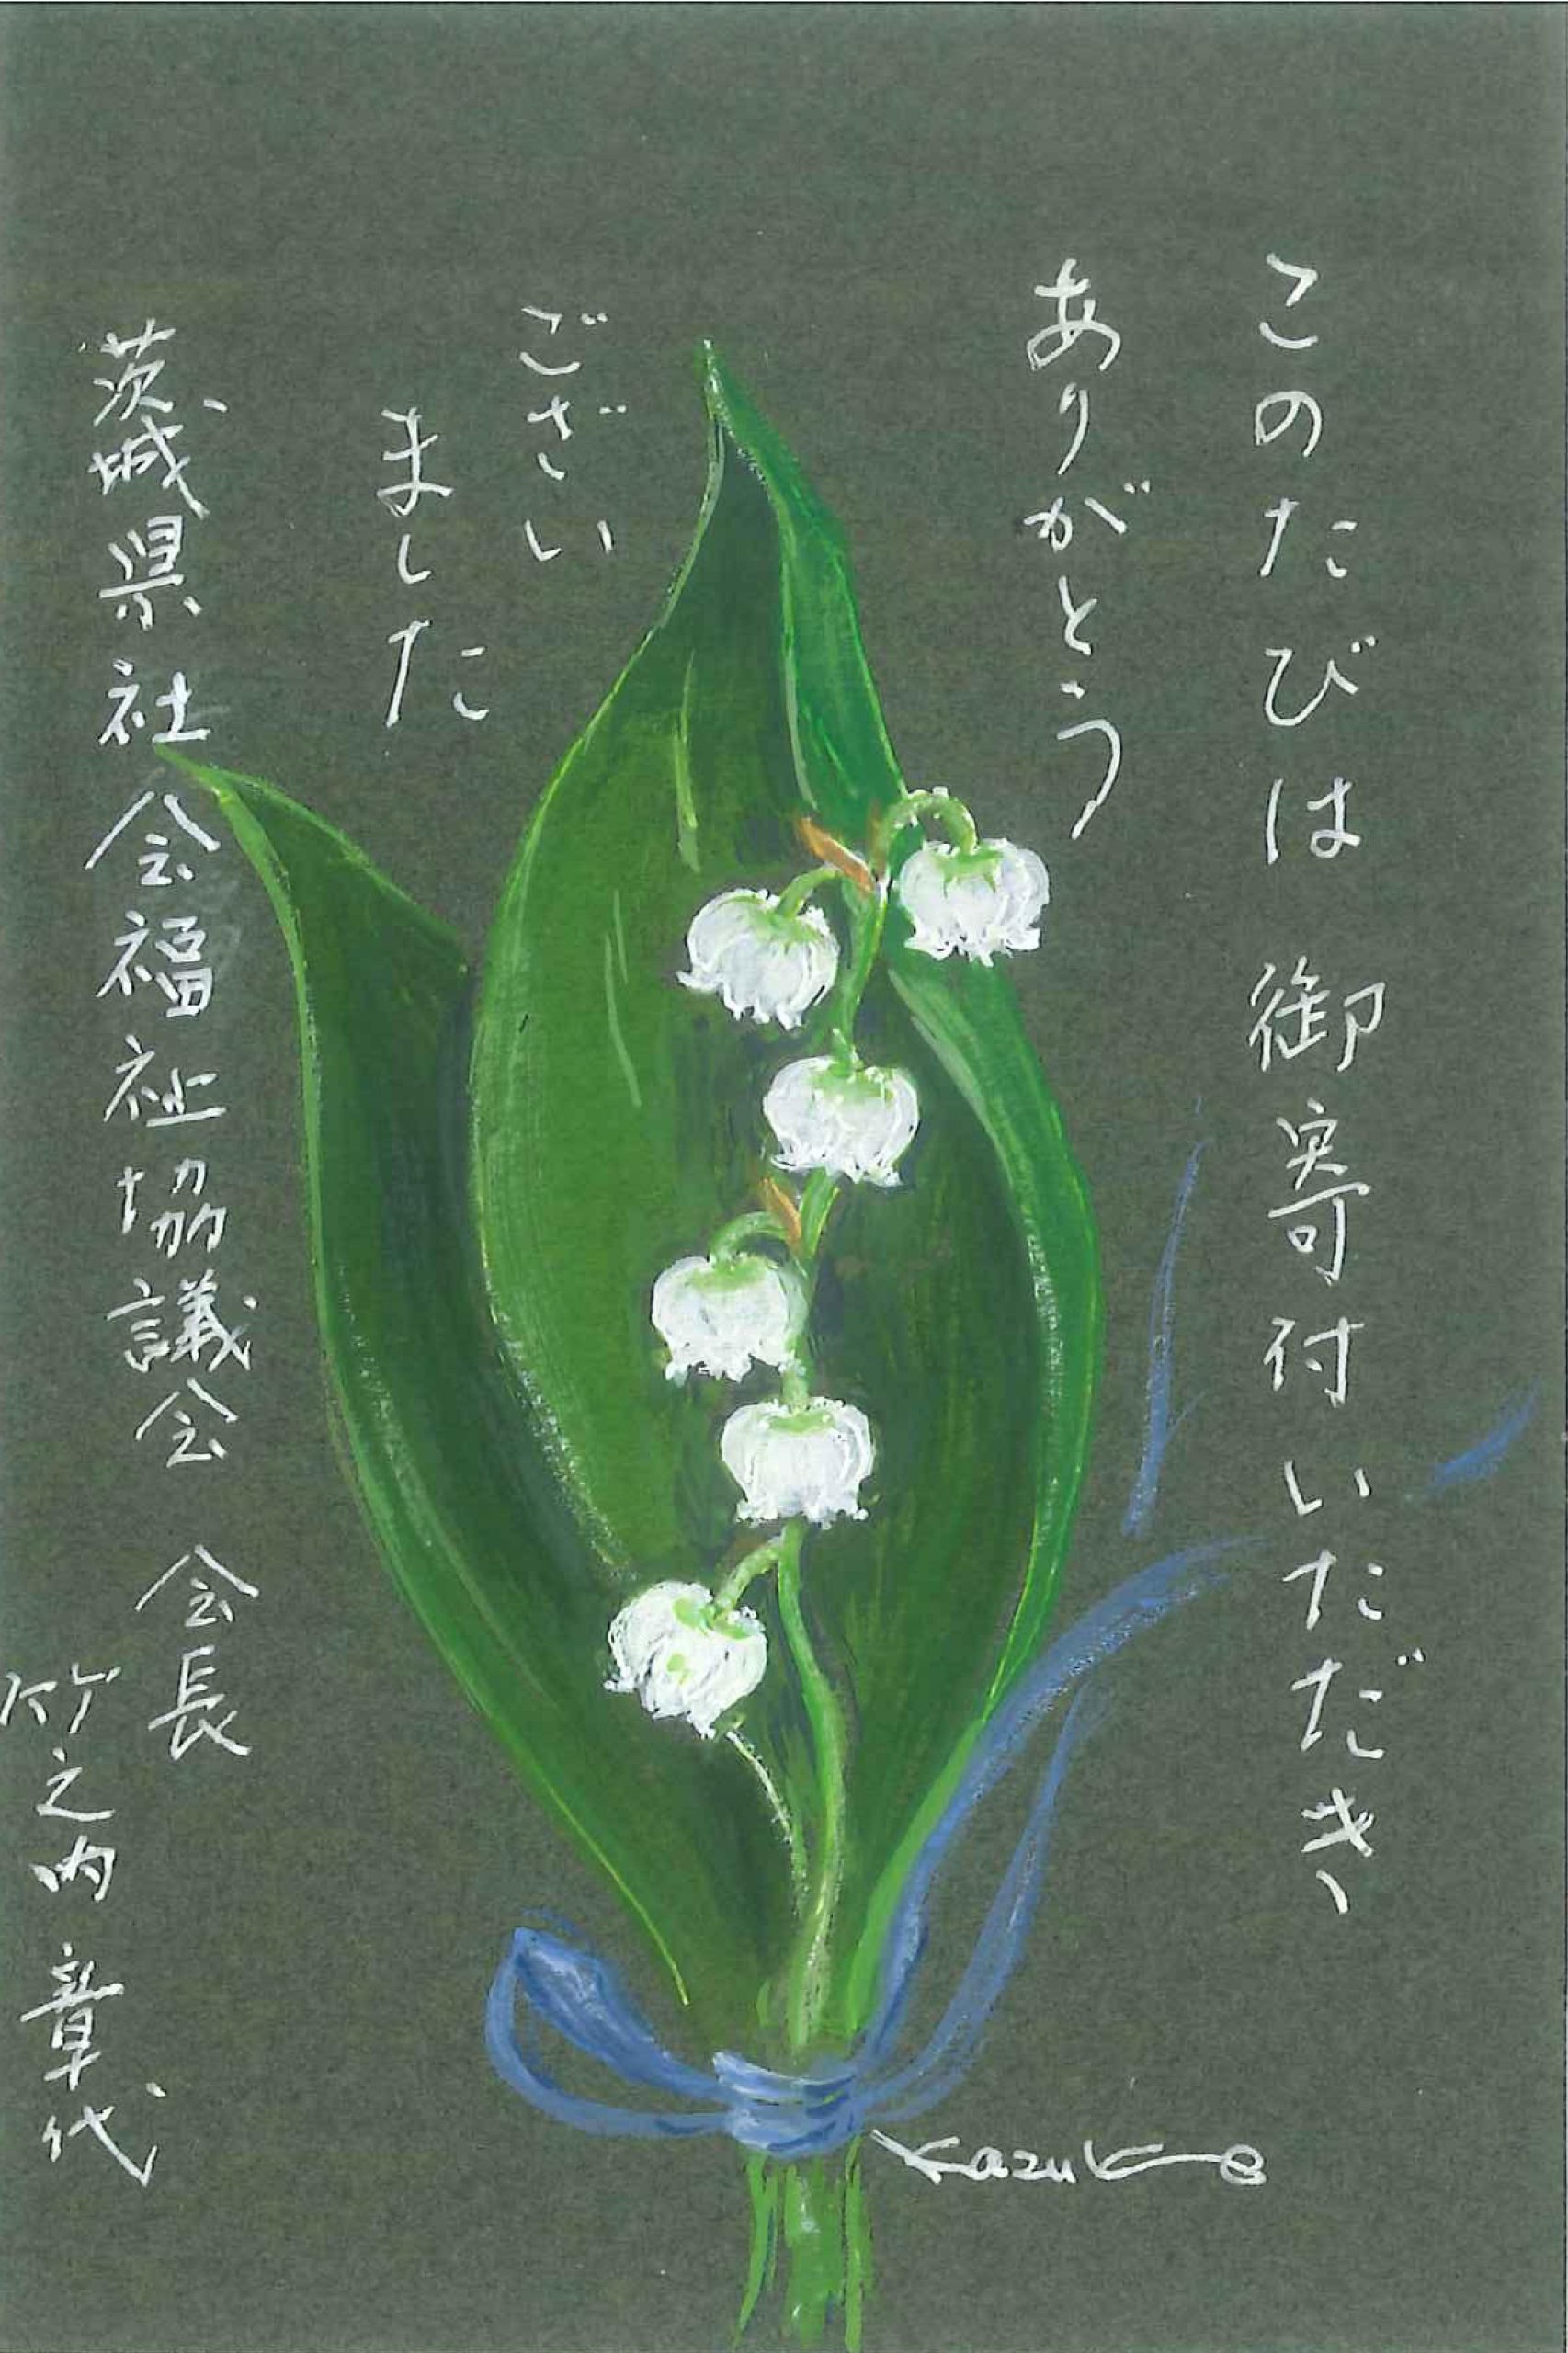 このたびは 御寄付いただき、
ありがとう
ござい
ました
茨城県社会福祉協議会 会長
竹之内 章代
Kazuko